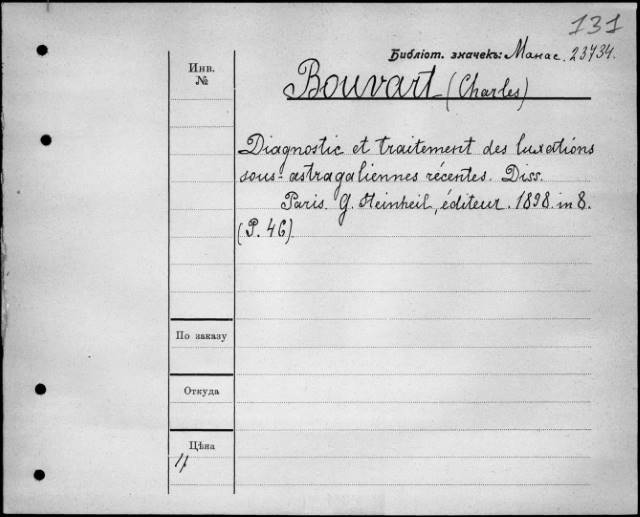 131
Библіот. значекъ: Манас. 23734.
Инв.
№
Bouvart (Charles)
Diagnostic et traitement des luxations
sous-astragaliennes récentes. Diss.
Paris. G. Steinheil, éditeur. 1898. in 8.
(P. 46)
По заказу
Откуда
Цѣна